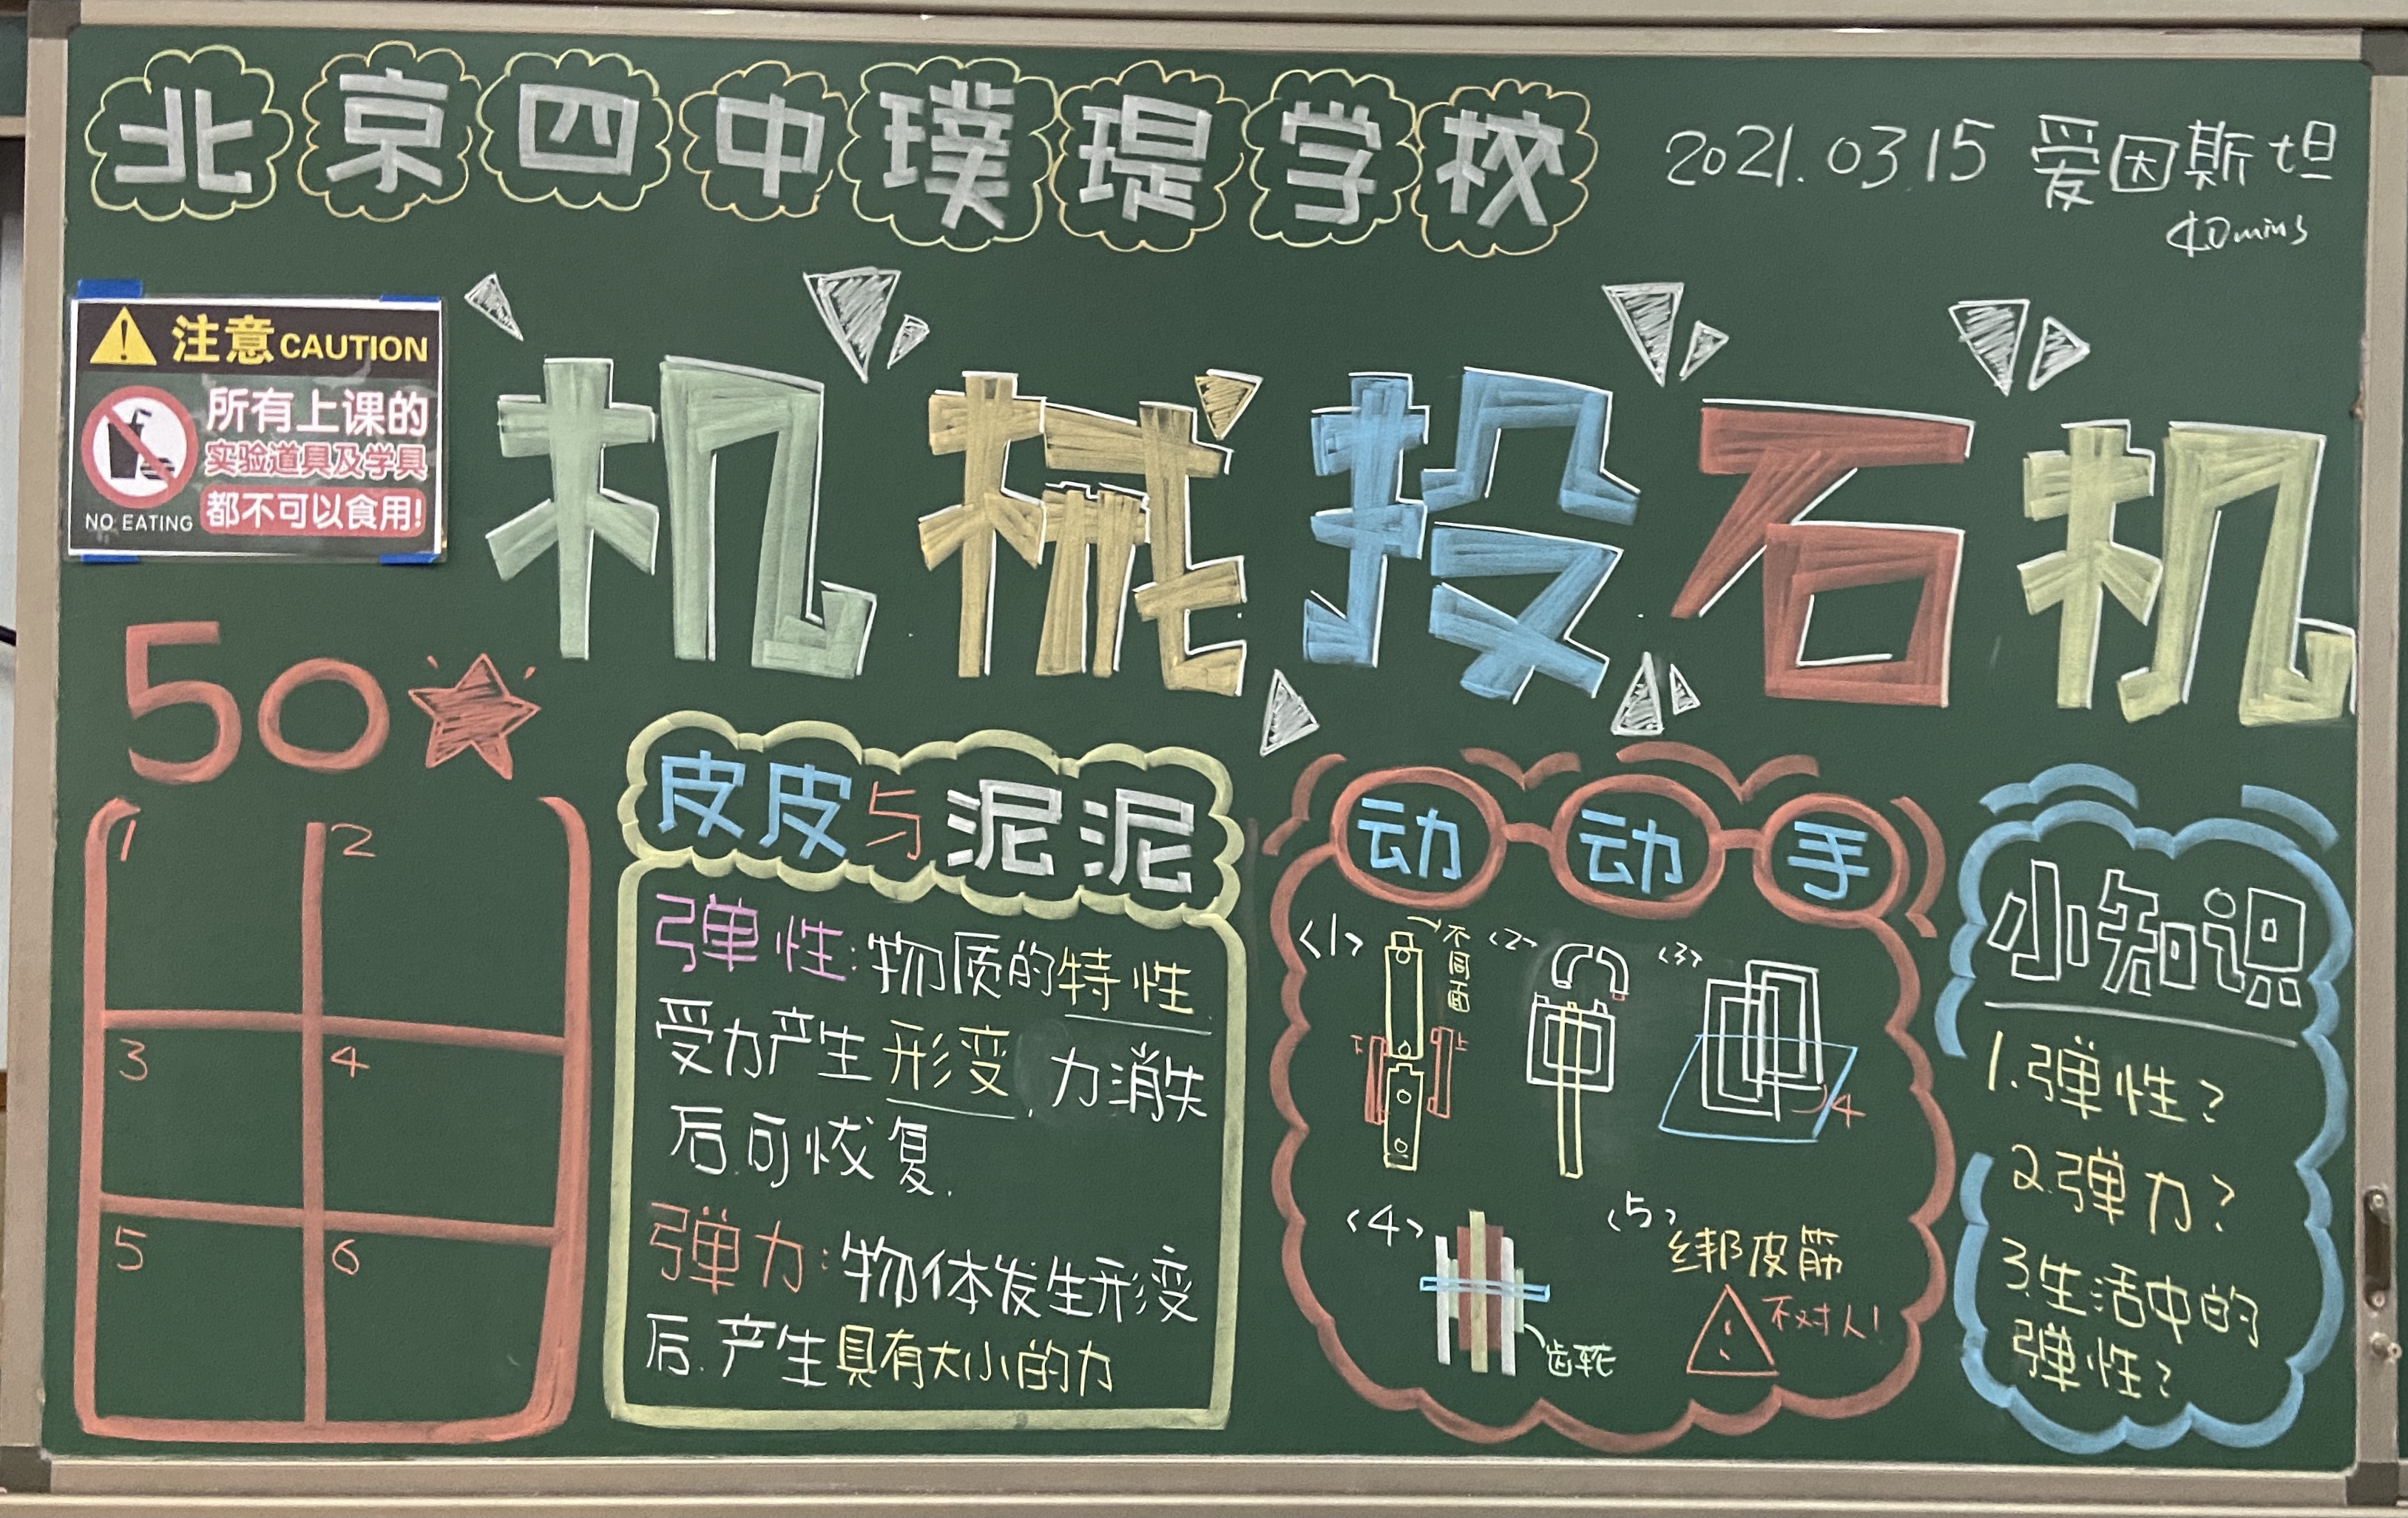 北京四中璞瑅学校
2021.03.15 爱因斯坦
40mins
注意CAUTION
所有上课的
实验道具及学具
都不可以食用!
NO EATING
机械投石机
50
1
2
3
4
5
6
皮皮与泥泥
弹性:物质的特性
受力产生形变,力消失
后可恢复.
弹力:物体发生形变
后.产生具有大小的力
动动手
<1>
不同面
下
上
<2>
<3>
4
<4>
齿轮
<5>
绑皮筋
!
不对人!
小知识
1.弹性?
2.弹力?
3.生活中的
弹性?